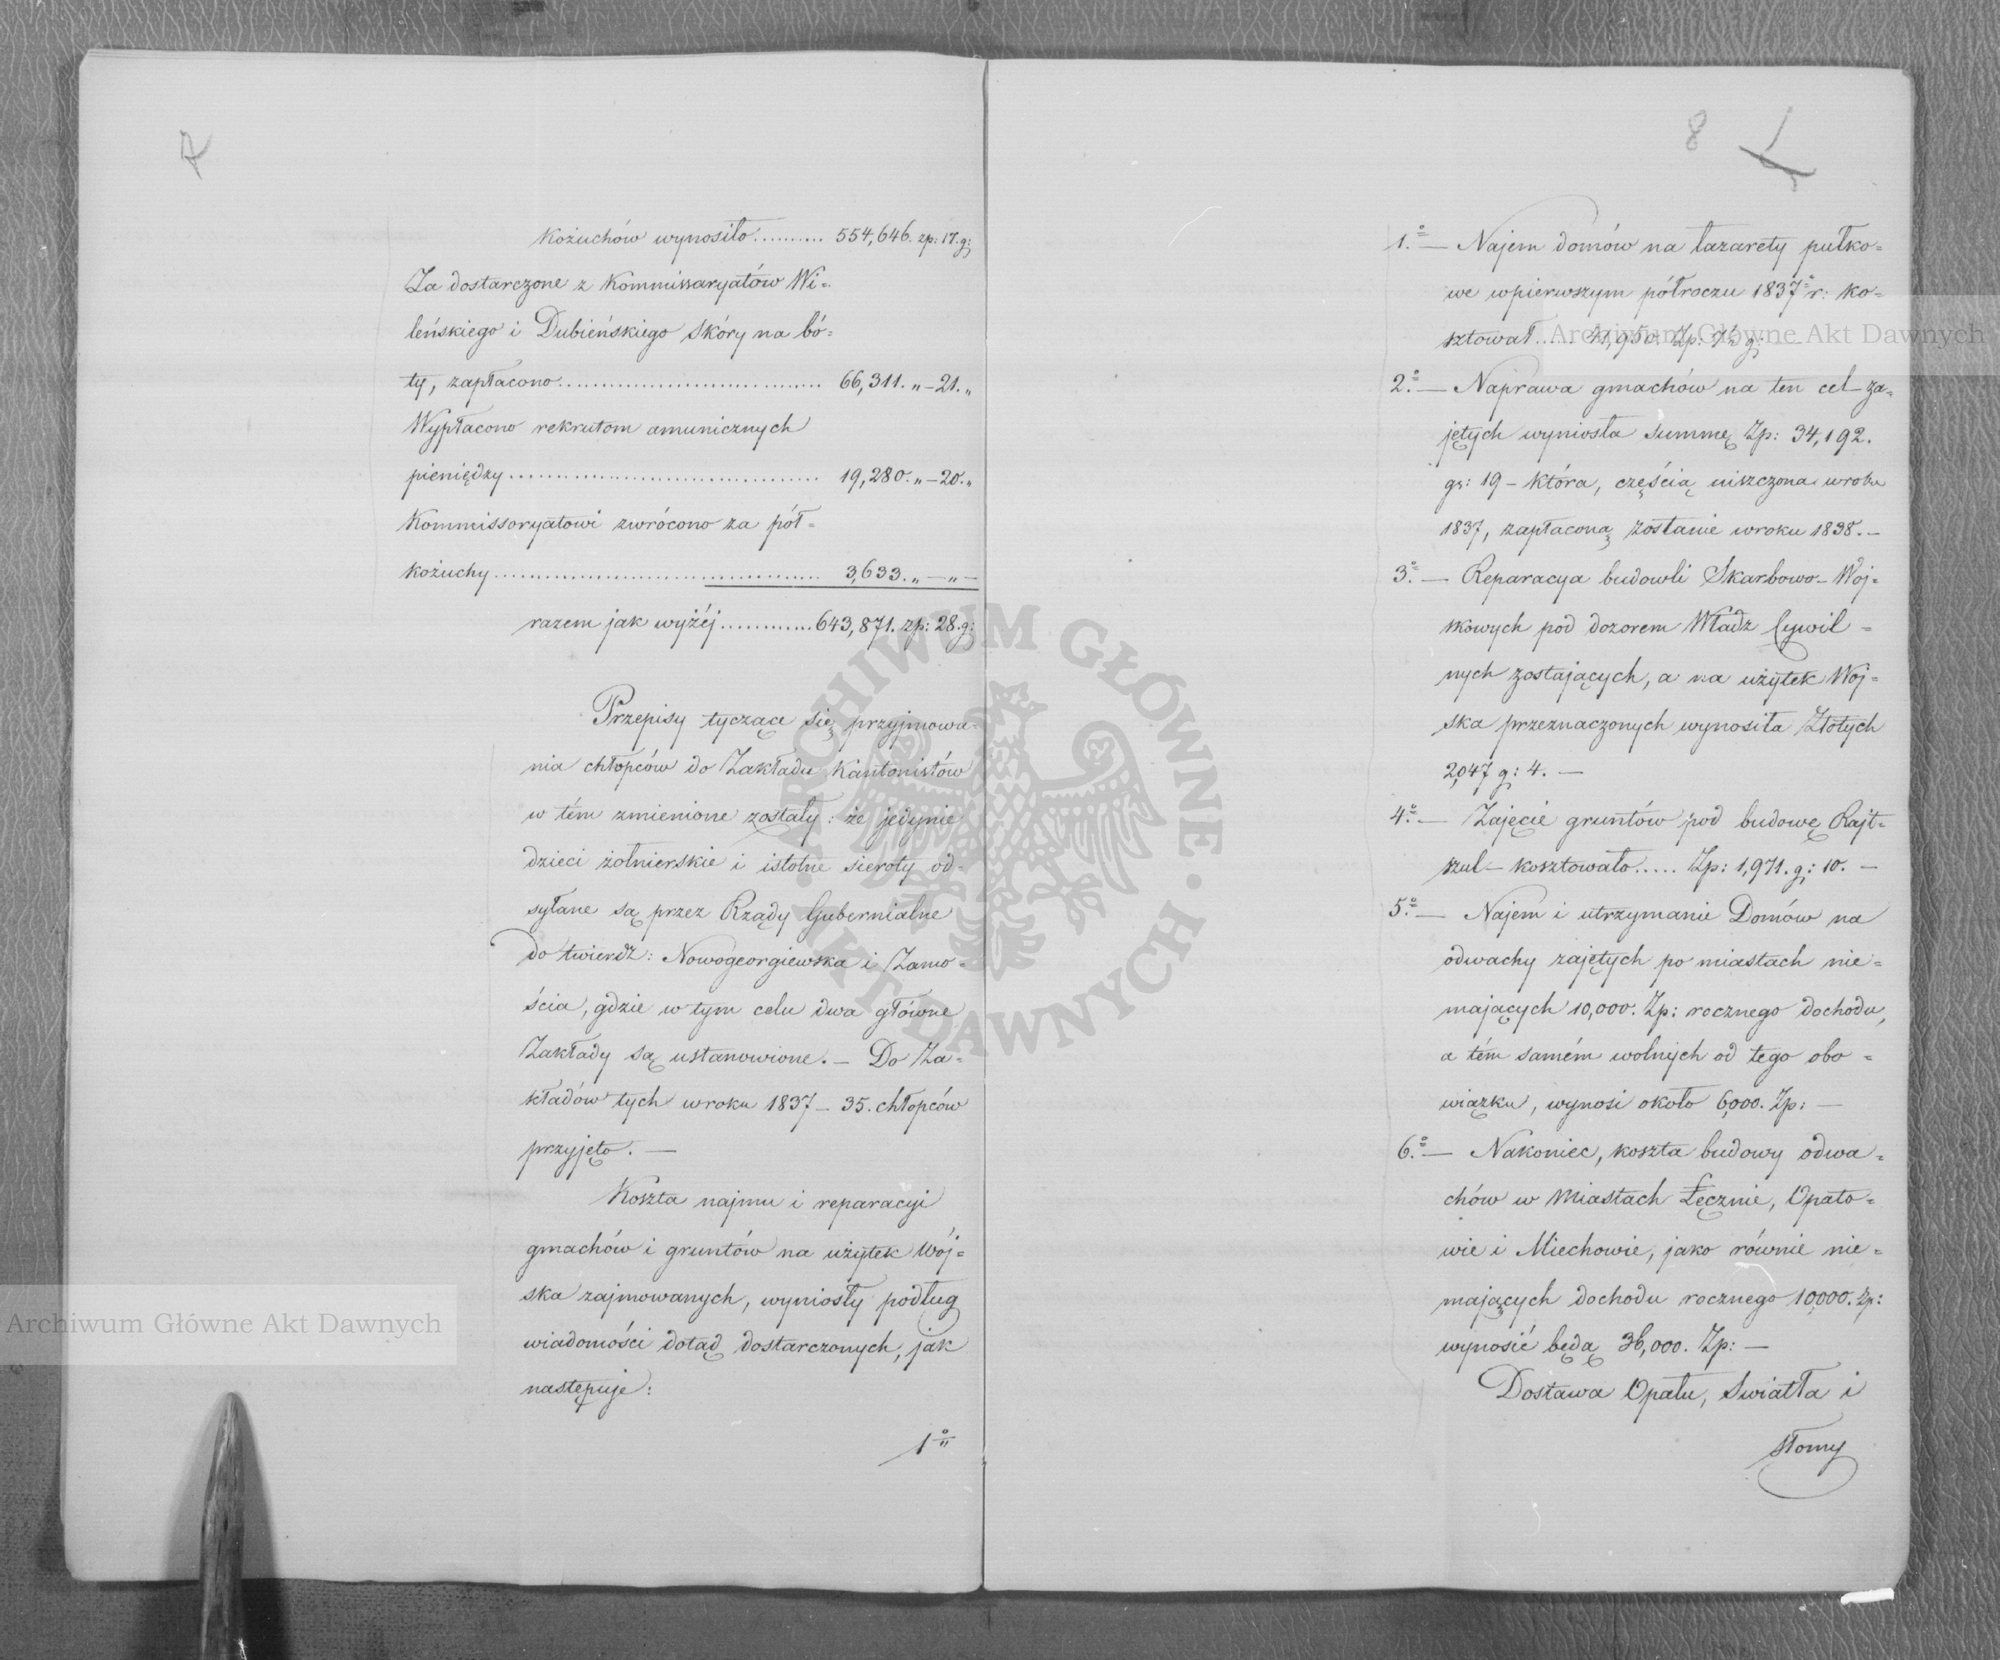 7
kożuchów wynosiło.......... 554,646. zp: 17. g:
Za dostarczone z Kommissaryatów Wi=
leńskiego i Dubieńskiego skóry na bó=
ty, zapłacono.............................. 66,311. „ – 21. „
Wypłacono rekrutom amunicznych
pieniędzy.................................... 19,280. „ – 20. „
Kommissoryatowi zwrócono za pół=
kożuchy...................................... 3,633. „ — „ —
razem jak wyżéj............ 643,871. zp: 28. g:
Przepisy tyczące się przyjmowa=
nia chłopców do Zakładu Kantonistów
w tém zmienione zostały: że jedynie
dzieci żołnierskie i istotne sieroty od=
syłane są przez Rządy Gubernialne
do twierdz: Nowogeorgiewska i Zamo=
ścia, gdzie w tym celu dwa główne
Zakłady są ustanowione. – Do Za=
kładów tych w roku 1837 – 35. chłopców
przyjęto. —
Koszta najmu i reparacyi
gmachów i gruntów na użytek Wój=
ska zajmowanych, wyniosły podług
wiadomości dotąd dostarczonych, jak
następuje:
1º
8
1.º — Najem domów na lazarety pułko=
we w pierwszym półroczu 1837º r: ko=
sztował..... 41,950. Zp: g:
2.º — Naprawa gmachów na ten cel za=
jętych wyniosła summę Zp: 34,192.
gr: 19 – która, częścią uiszczona w roku
1837, zapłaconą zostanie w roku 1838. –
3.º — Reparacya budowli Skarbowo-Woj=
skowych pod dozorem Władz Cywil=
nych zostających, a na użytek Woj=
ska przeznaczonych wynosiła Złotych
2,047 g: 4. —
4.º — Zajęcie gruntów pod budowę Rajt=
szul – kosztowało..... Zp: 1,971. g: 10. —
5.º — Najem i utrzymanie Domów na
odwachy zajętych po miastach nie=
mających 10,000. Zp: rocznego dochodu,
a tém samém wolnych od tego obo=
wiązku, wynosi około 6,000. Zp: —
6.º — Nakoniec, koszta budowy odwa=
chów w miastach Łęcznie, Opato=
wie i Miechowie, jako równie nie=
mających dochodu rocznego 10,000. Zp:
wynosić będą 36,000. Zp: —
Dostawa Opału, Swiatła i
słomy
Archiwum Główne Akt Dawnych
Archiwum Główne Akt Dawnych
· ARCHIWUM GŁÓWNE · AKT DAWNYCH